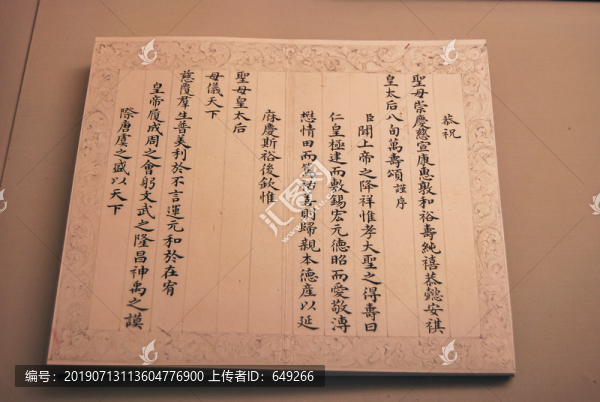 恭祝
聖母崇慶慈宣康惠敦和裕壽純禧恭懿安祺
皇太后八旬萬壽頌謹序
臣聞上帝之降祥惟孝大聖之得壽曰
仁皇極建而敷錫宏元德昭而愛敬溥
懋情田而篤祜善則歸親本德產以延
庥慶斯裕後欽惟
聖母皇太后
母儀天下
慈蔭羣生普美利於不言運元和於在宥
皇帝履成周之會躬文武之隆昌神禹之謨
際唐虞之盛以天下
编号：20190713113604776900 上传者ID：649266